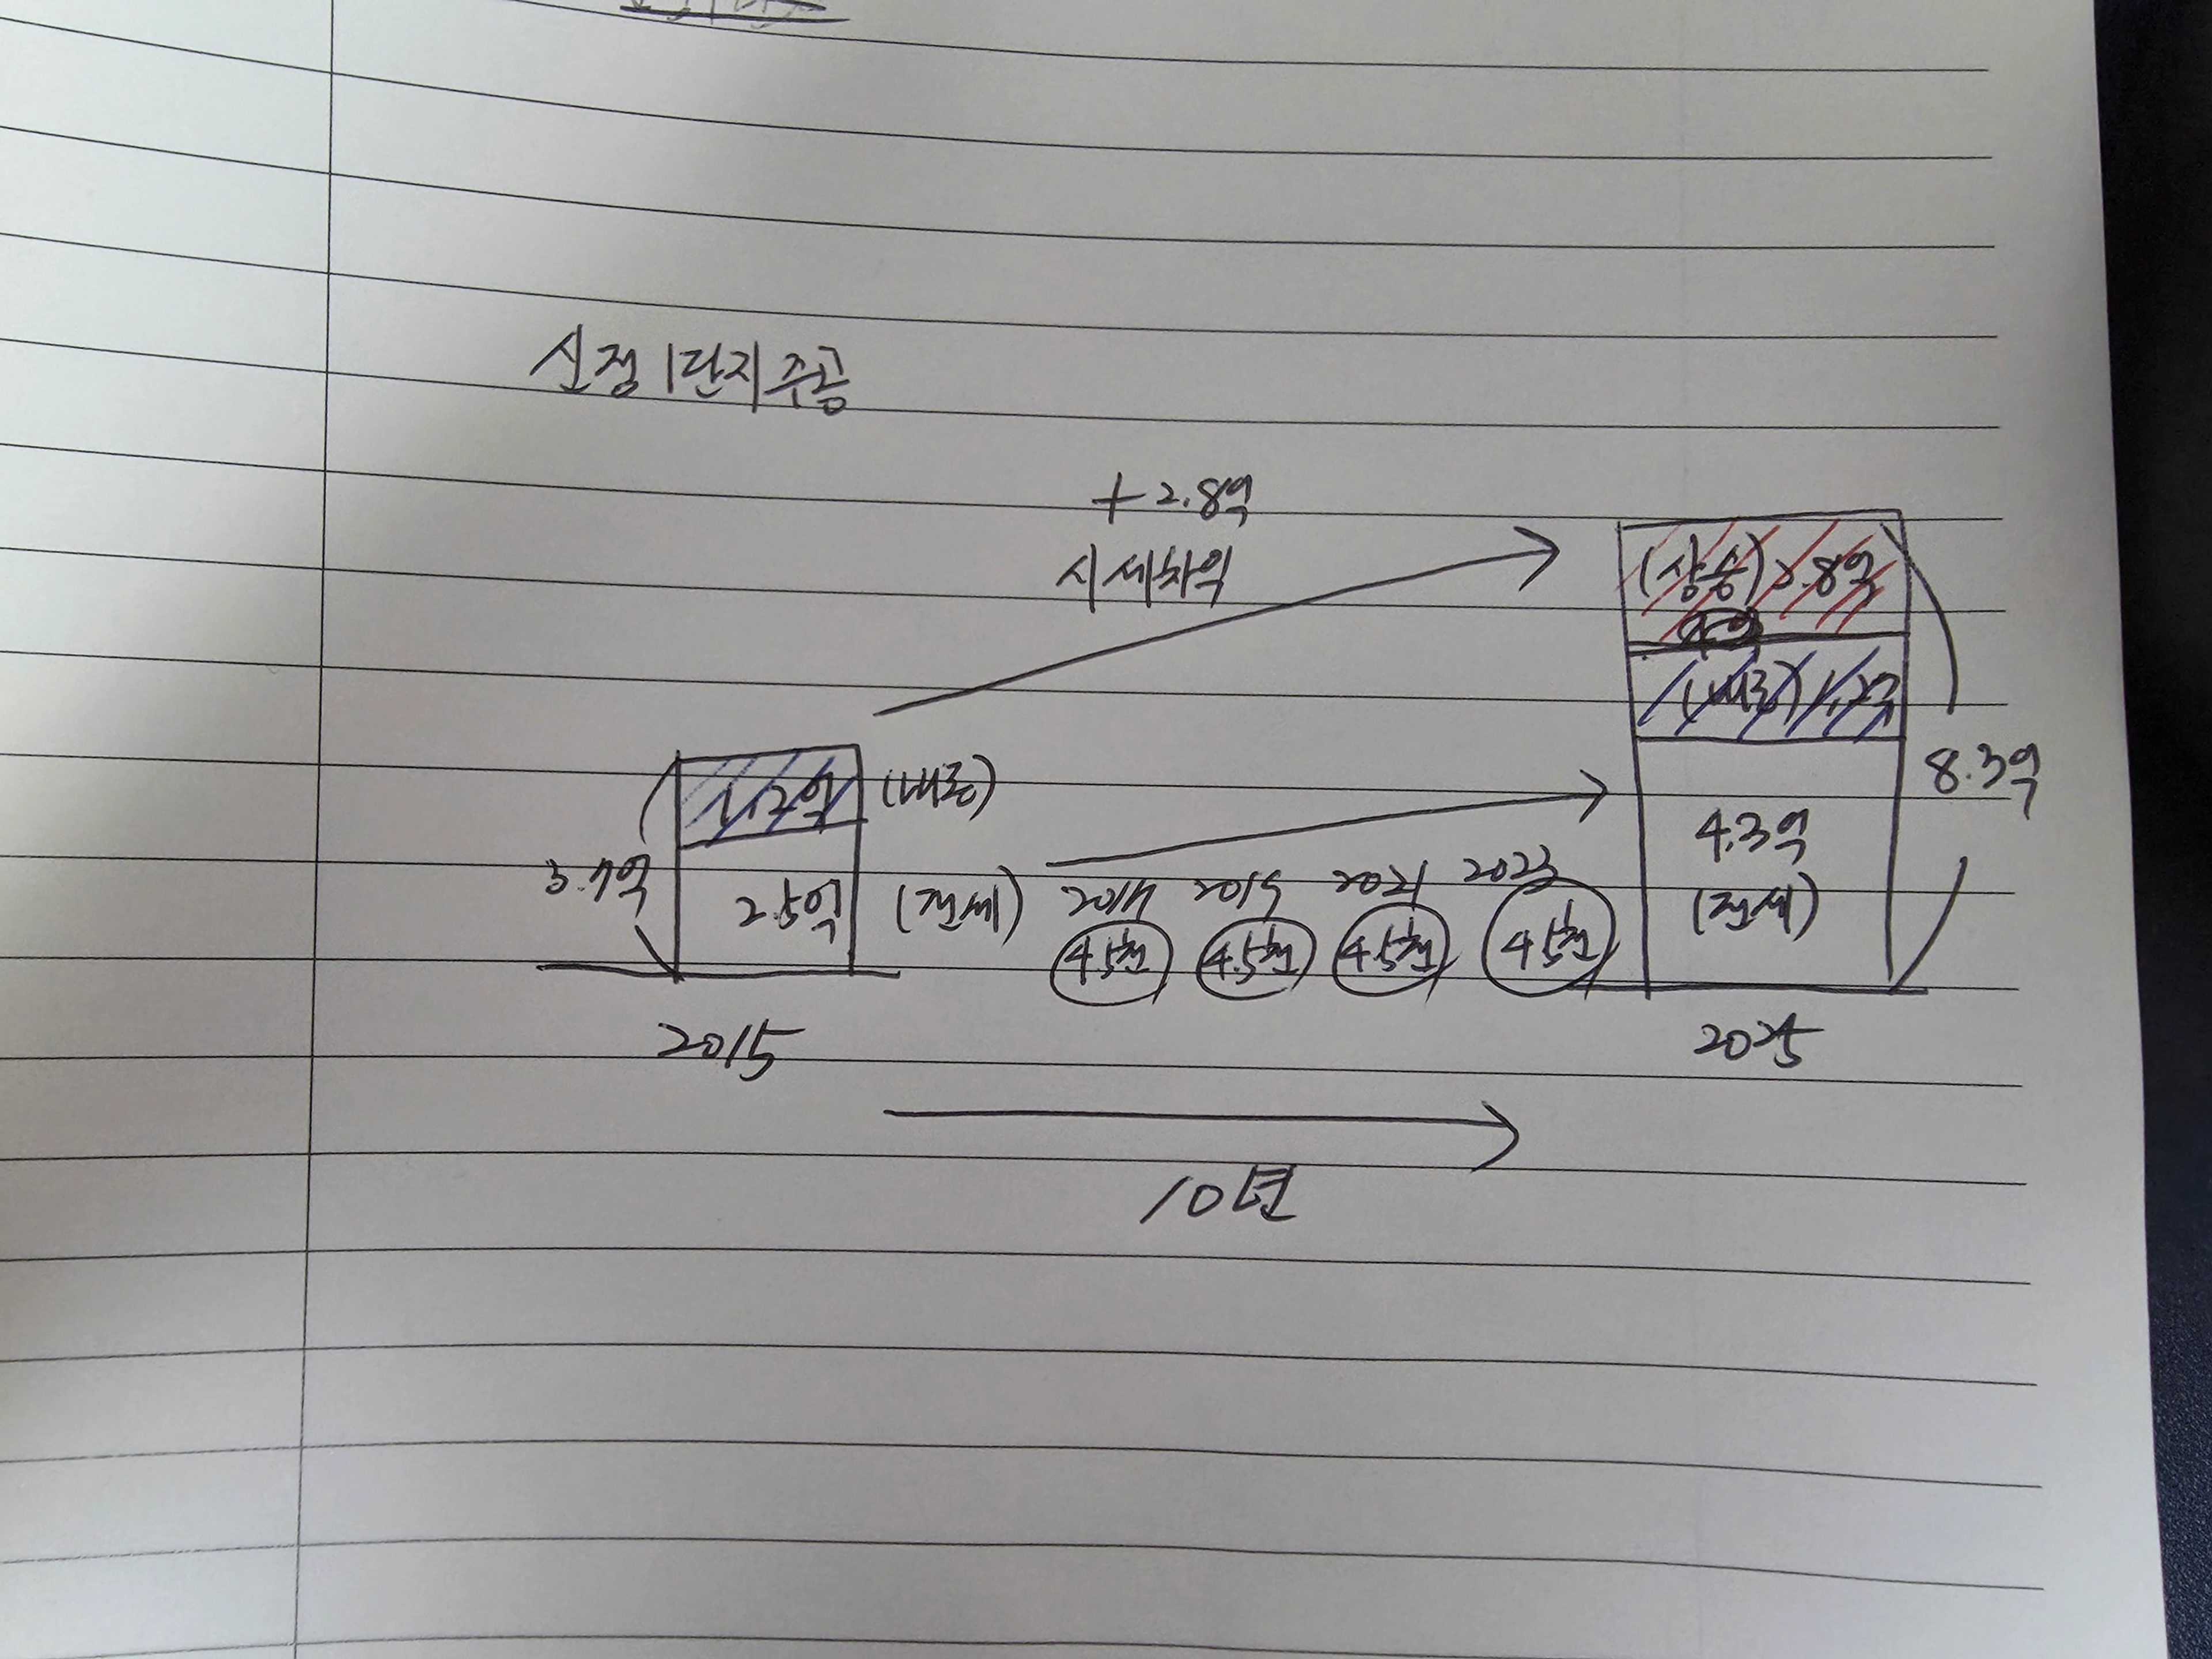 신정 1단지 주공
+ 2.8억
시세차익
(상승) 2.8억
(내돈) 1.2억
8.3억
4.3억
(전세)
1.2억 (내돈)
3.7억
2.5억 (전세)
2017 2019 2021 2023
4.5천 4.5천 4.5천 4.5천
2015
2025
10년